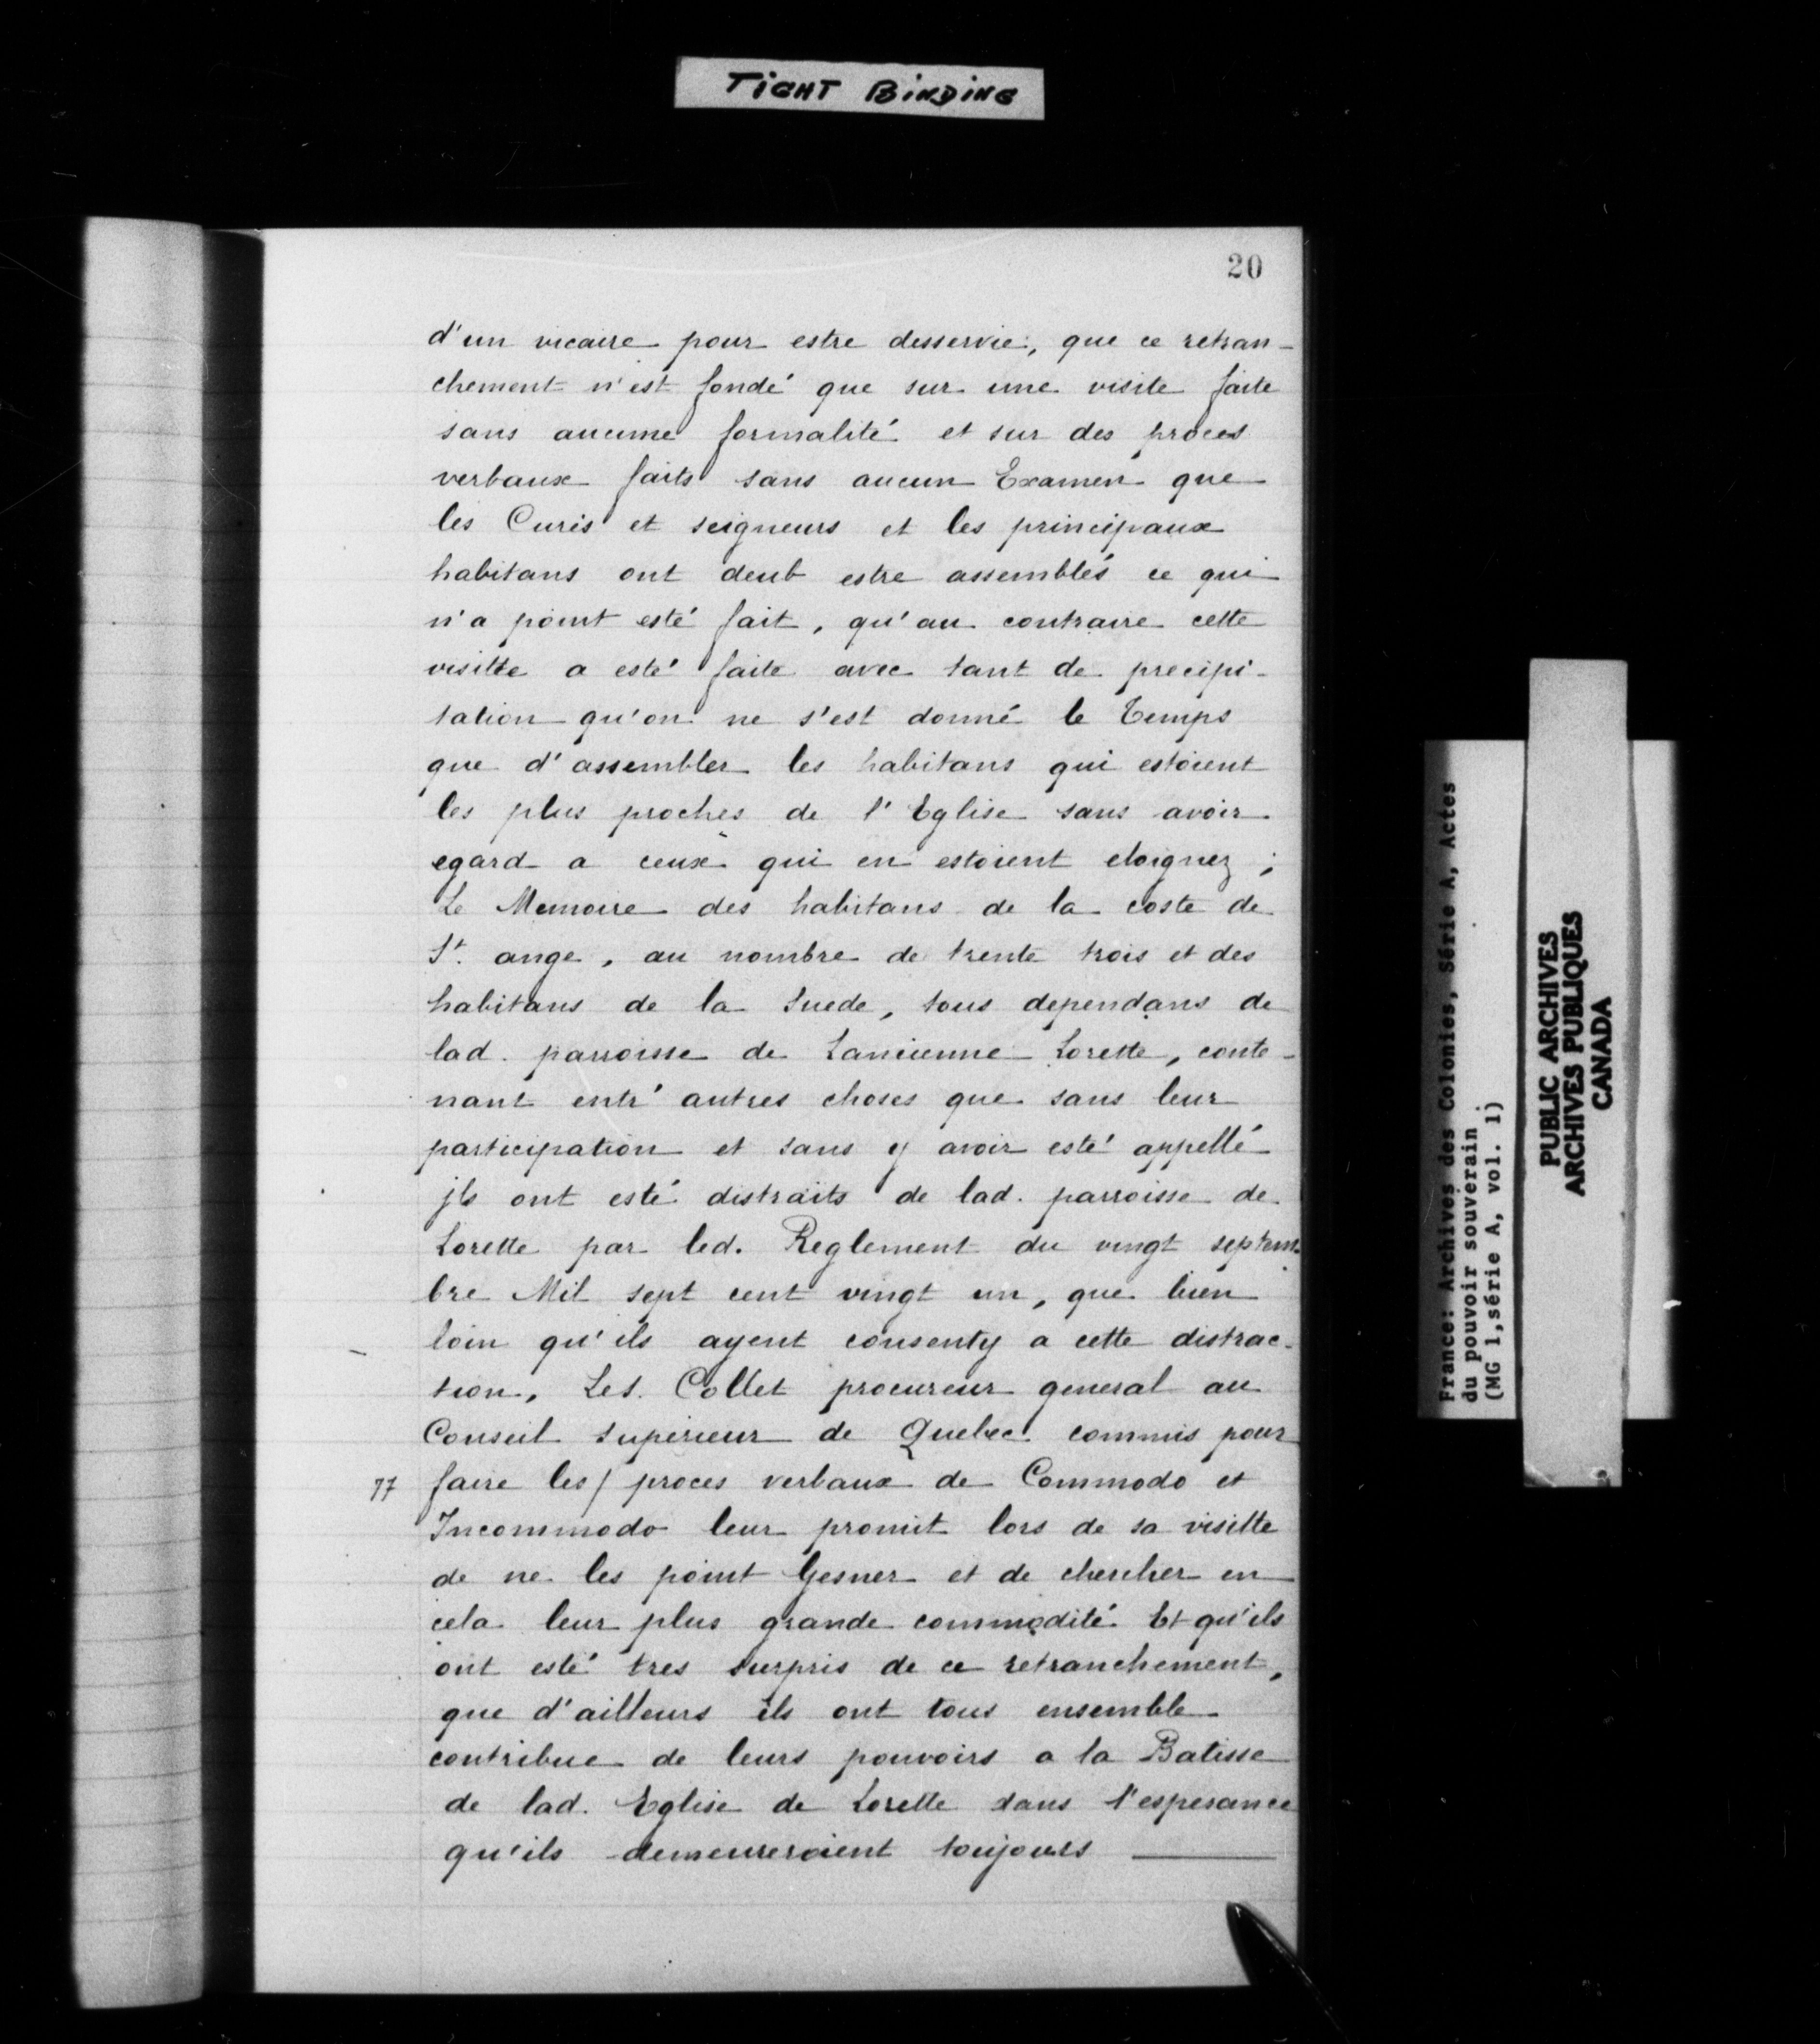 TIGHT BINDING
20
d'un vicaire pour estre desservie, que ce retran-
chement n'est fondé que sur une visite faite
sans aucune formalité et sur des proces
verbaux faits sans aucun Examen que
les Curés et seigneurs et les principaux
habitans ont deub estre assemblés ce qui
n'a point esté fait, qu'au contraire cette
visitte a esté faite avec tant de precipi-
tation qu'on ne s'est donné le Temps
que d'assembler les habitans qui estoient
les plus proches de l'Eglise sans avoir
egard a ceux qui en estoient eloignez;
Le Memoire des habitans de la coste de
St. ange, au nombre de trente trois et des
habitans de la Suede, tous dependans de
lad. parroisse de Lancienne Lorette, conte-
nant entr'autres choses que sans leur
participation et sans y avoir esté appellé
jls ont esté distraits de lad. parroisse de
Lorette par led. Reglement du vingt septem-
bre Mil sept cent vingt un, que bien
loin qu'ils ayent consenty a cette distrac-
tion, Le S. Collet procureur general au
Conseil superieur de Quebec commis pour
77 faire les/ proces verbaux de Commodo et
Incommodo leur promit lors de sa visitte
de ne les point Gesner et de chercher en
cela leur plus grande commodité Et qu'ils
ont esté tres surpris de ce retranchement,
que d'ailleurs ils ont tous ensemble
contribue de leurs pouvoirs a la Batisse
de lad. Eglise de Lorette dans l'esperance
qu'ils demeureroient toujours
France: Archives des Colonies, Série A, Actes
du pouvoir souverain
(MG 1,série A, vol. 1)
PUBLIC ARCHIVES
ARCHIVES PUBLIQUES
CANADA